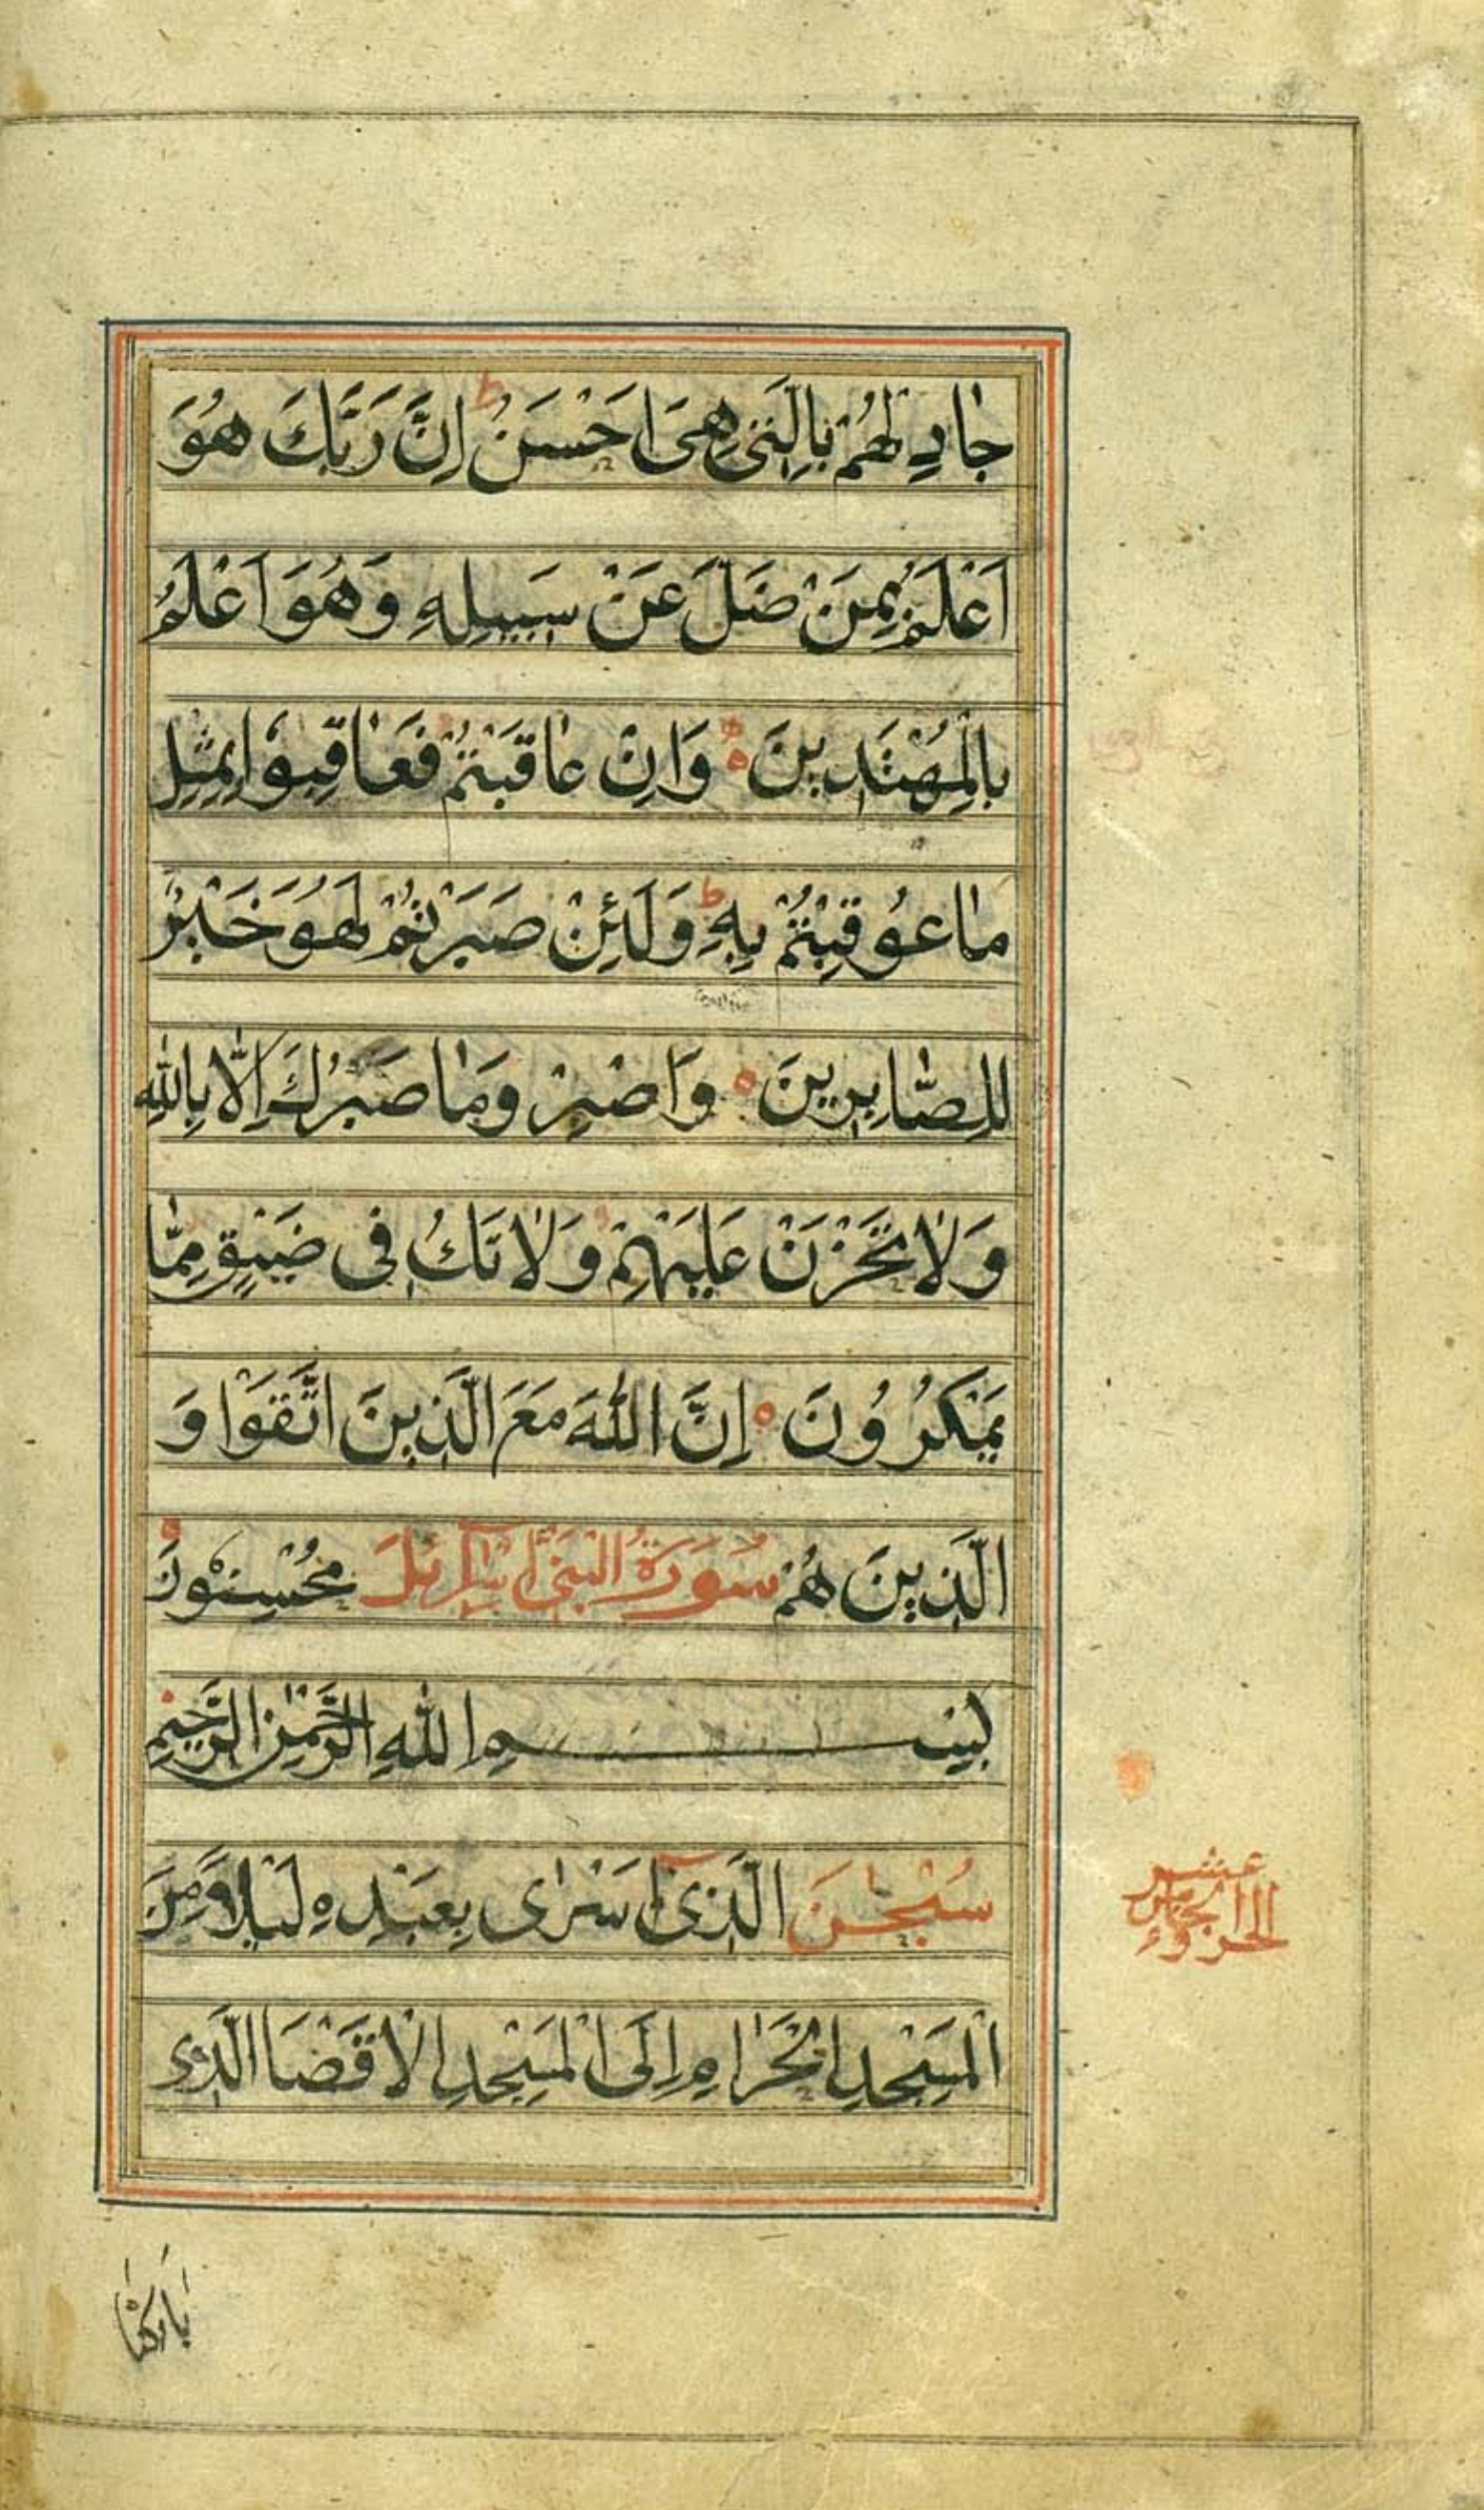 جادِلهُمْ بِالَّتی هِیَ اَحْسَنُ ط اِنَّ رَبَّكَ هُوَ
اَعْلَمُ بِمَنْ ضَلَّ عَنْ سَبِیلِهِ وَهُوَ اَعْلَمُ
بِالْمُهْتَدِینَ وَاِنْ عاقَبْتُمْ فَعَاقِبُوا بِمِثْلِ
مٰا عُوقِبْتُمْ بِهِ ط وَلَئِنْ صَبَرْتُمْ لَهُوَ خَیْرٌ
لِلصّٰابِرِینَ وَاصْبِرْ وَمٰا صَبْرُكَ اِلّٰا بِاللّٰهِ
وَلٰا تَحْزَنْ عَلَیْهِمْ وَلٰا تَكُ فِی ضَیْقٍ مِمّٰا
یَمْكُرُونَ اِنَّ اللّٰهَ مَعَ الَّذِینَ اتَّقَوْا وَ
الَّذِینَ هُمْ سُورَةُ الْبَنِیٓ اِسْرآئِلَ مُحْسِنُونَ
بِسْمِ اللّٰهِ الرَّحْمٰنِ الرَّحِیمِ
سُبْحٰنَ الَّذِیٓ اَسْرٰی بِعَبْدِهِ لَیْلًا مِنَ
الْمَسْجِدِ الْحَرٰامِ اِلَی الْمَسْجِدِ الْاَقْصَا الَّذِی
عشر
الجزء الخامس
بٰارَكْنٰا